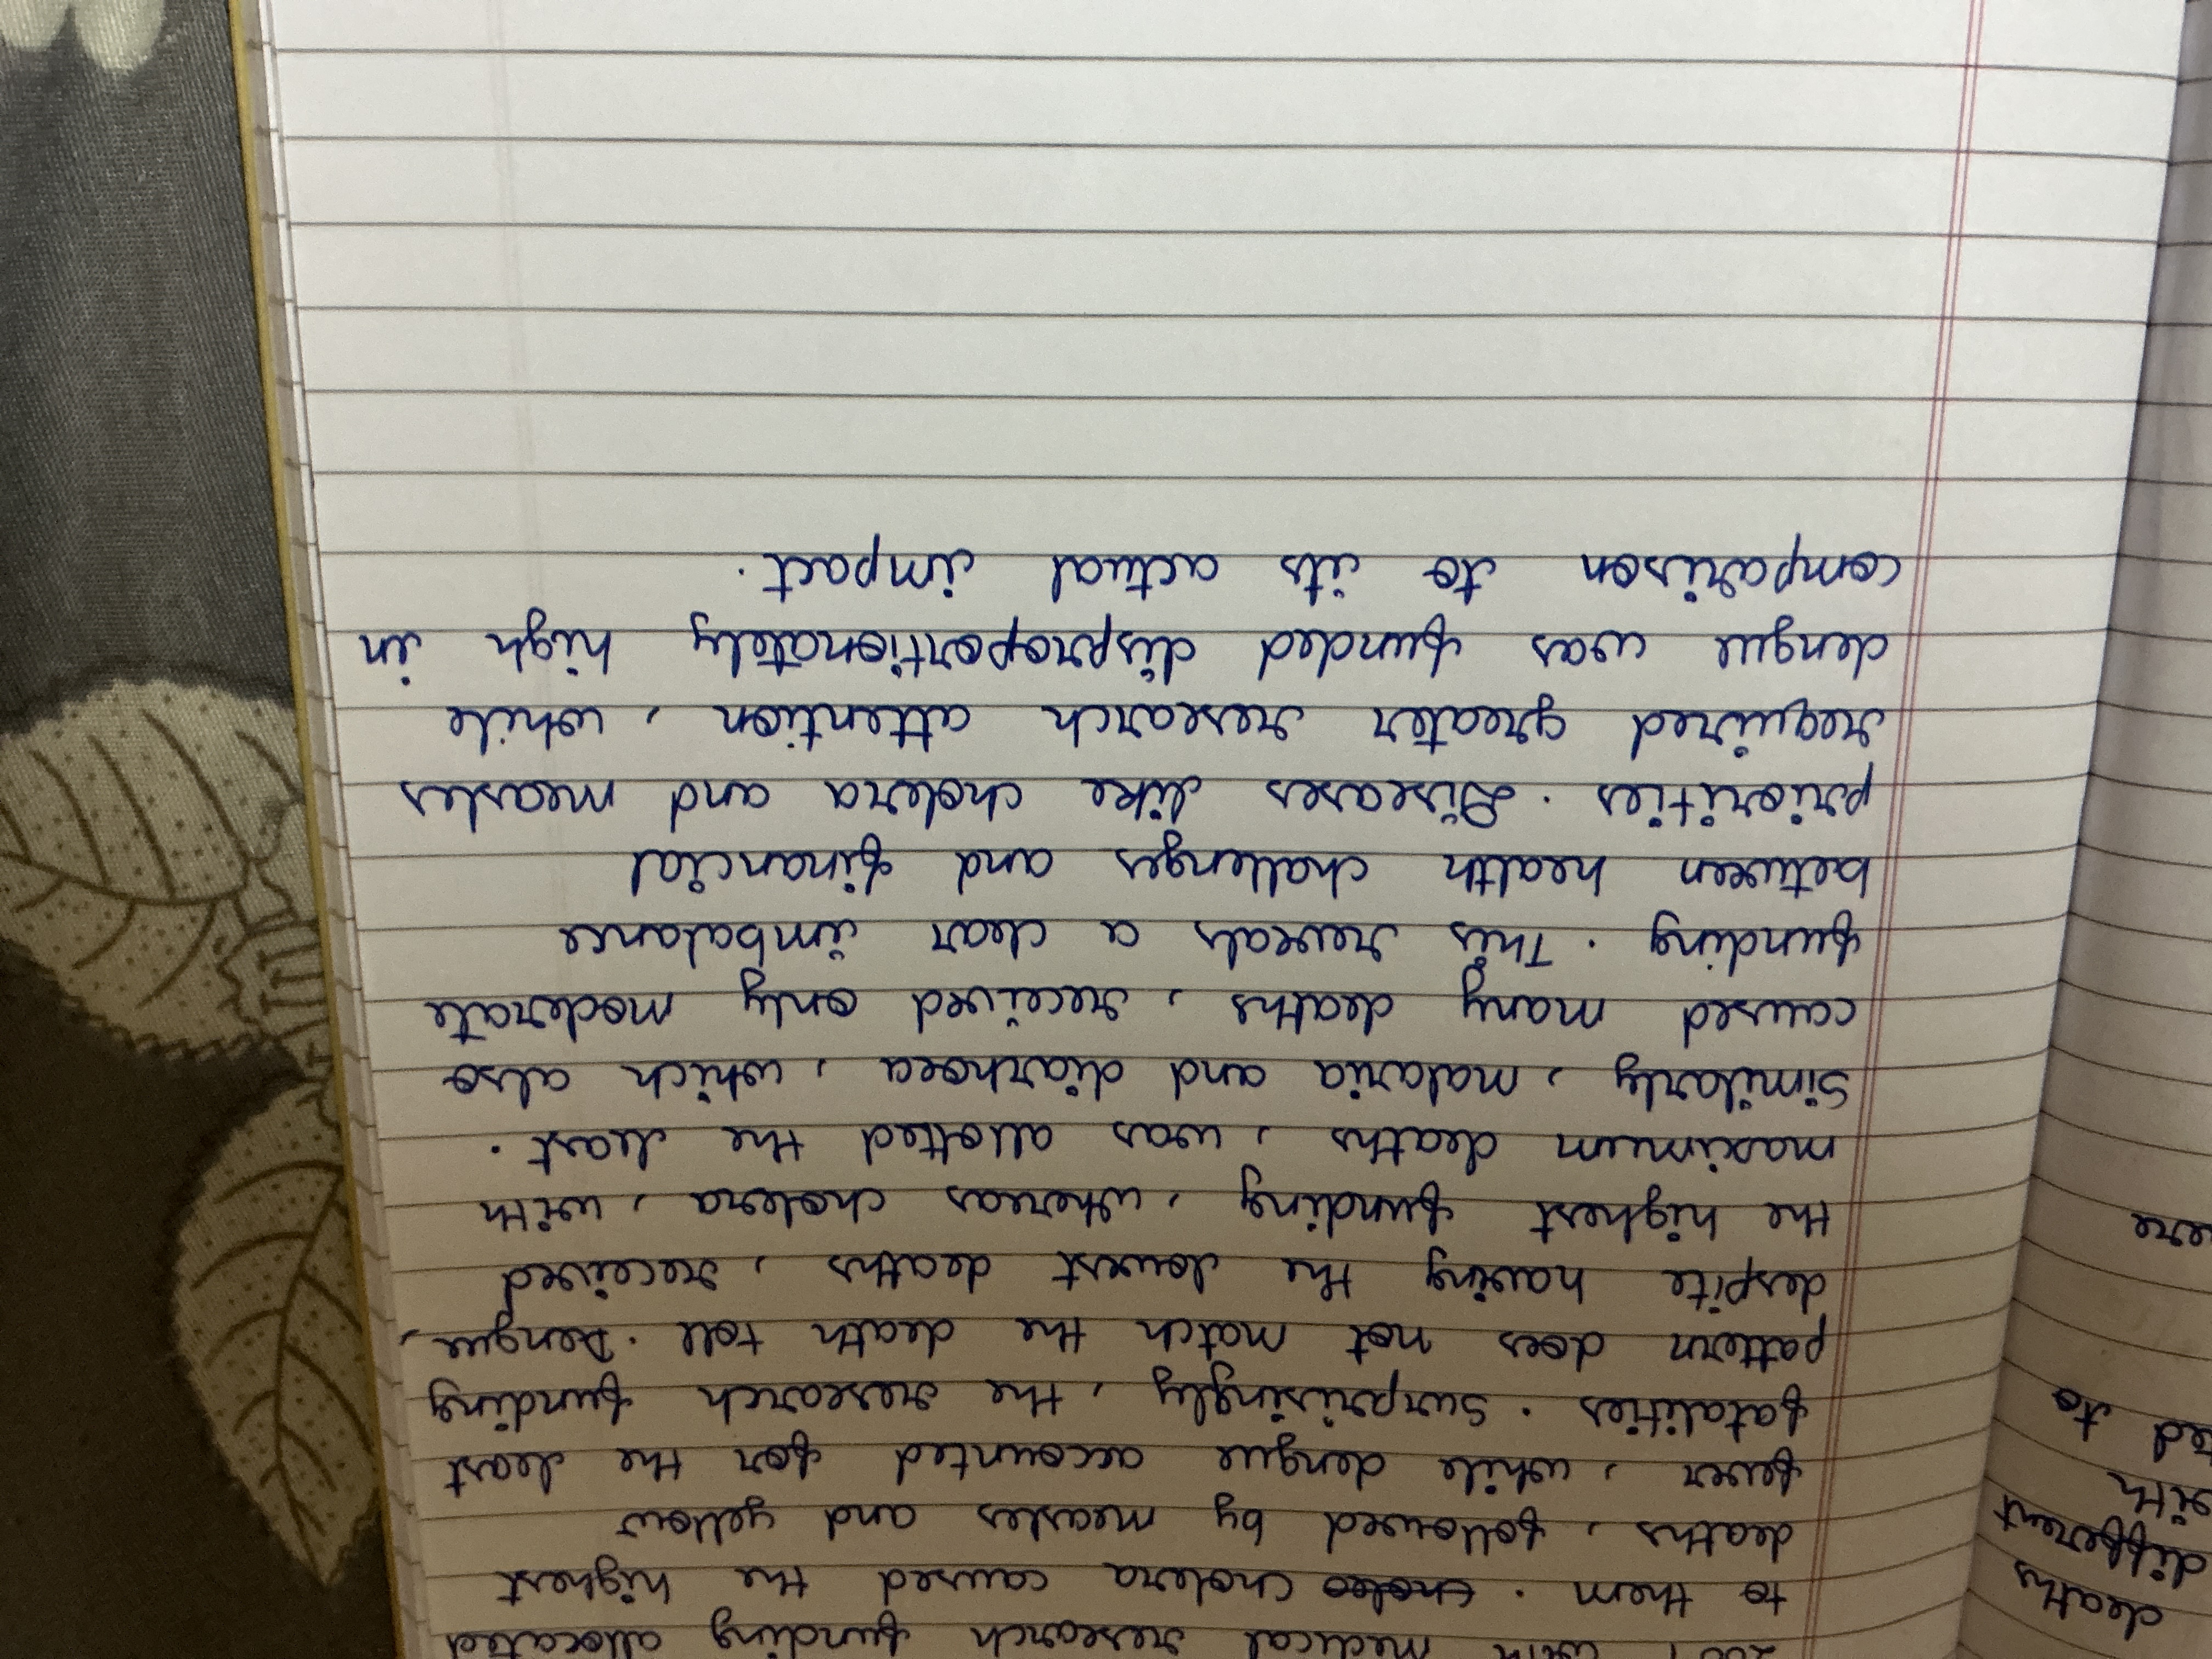 with medical research funding allocated
to them. Choleo cholera caused the highest
deaths, followed by measles and yellow
fever, while dengue accounted for the least
fatalities. Surprisingly, the research funding
pattern does not match the death toll. Dengue,
despite having the lowest deaths, received
the highest funding, whereas cholera, with
maximum deaths, was allotted the least.
Similarly, malaria and diarhoea, which also
caused many deaths, received only moderate
funding. This reveals a clear imbalance
between health challenges and financial
priorities. Diseases like cholera and measles
required greater research attention, while
dengue was funded disproportionately high in
comparison to its actual impact.
deaths
different
with
ted to
were